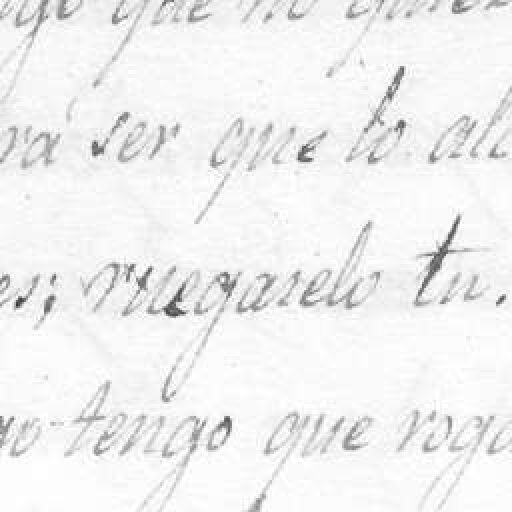 que no
rá ser que lo alc
es; rruegaselo tu.
yo tengo que roga